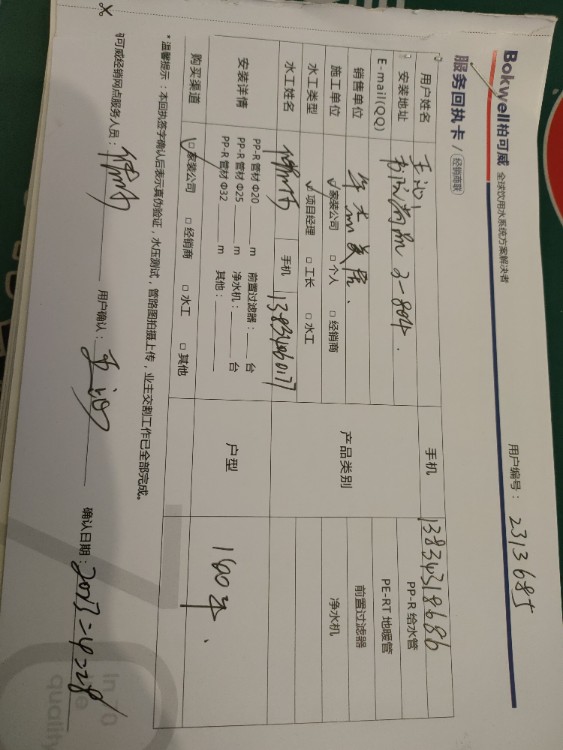 Bokwell柏可威 全球饮用水系统方案解决者
用户编号：2313685
服务回执卡 / 经销商联
用户姓名 手机 13834318686
安装地址 2-804.
E-mail(QQ)
销售单位
施工单位 家装公司 个人 经销商
水工类型 项目经理 工长 水工
水工姓名 手机 13834060177
产品类别 PP-R 给水管
PE-RT 地暖管
前置过滤器
净水机
安装详情 PP-R 管材 Φ20 m 前置过滤器： 台
PP-R 管材 Φ25 m 净水机： 台
PP-R 管材 Φ32 m 其他：
户型 160平.
购买渠道 家装公司 经销商 水工 其他
*温馨提示：本回执签字确认后表示真伪验证，水压测试，管路图拍摄上传，业主交割工作已全部完成。
可威经销网点服务人员： 用户确认： 确认日期：